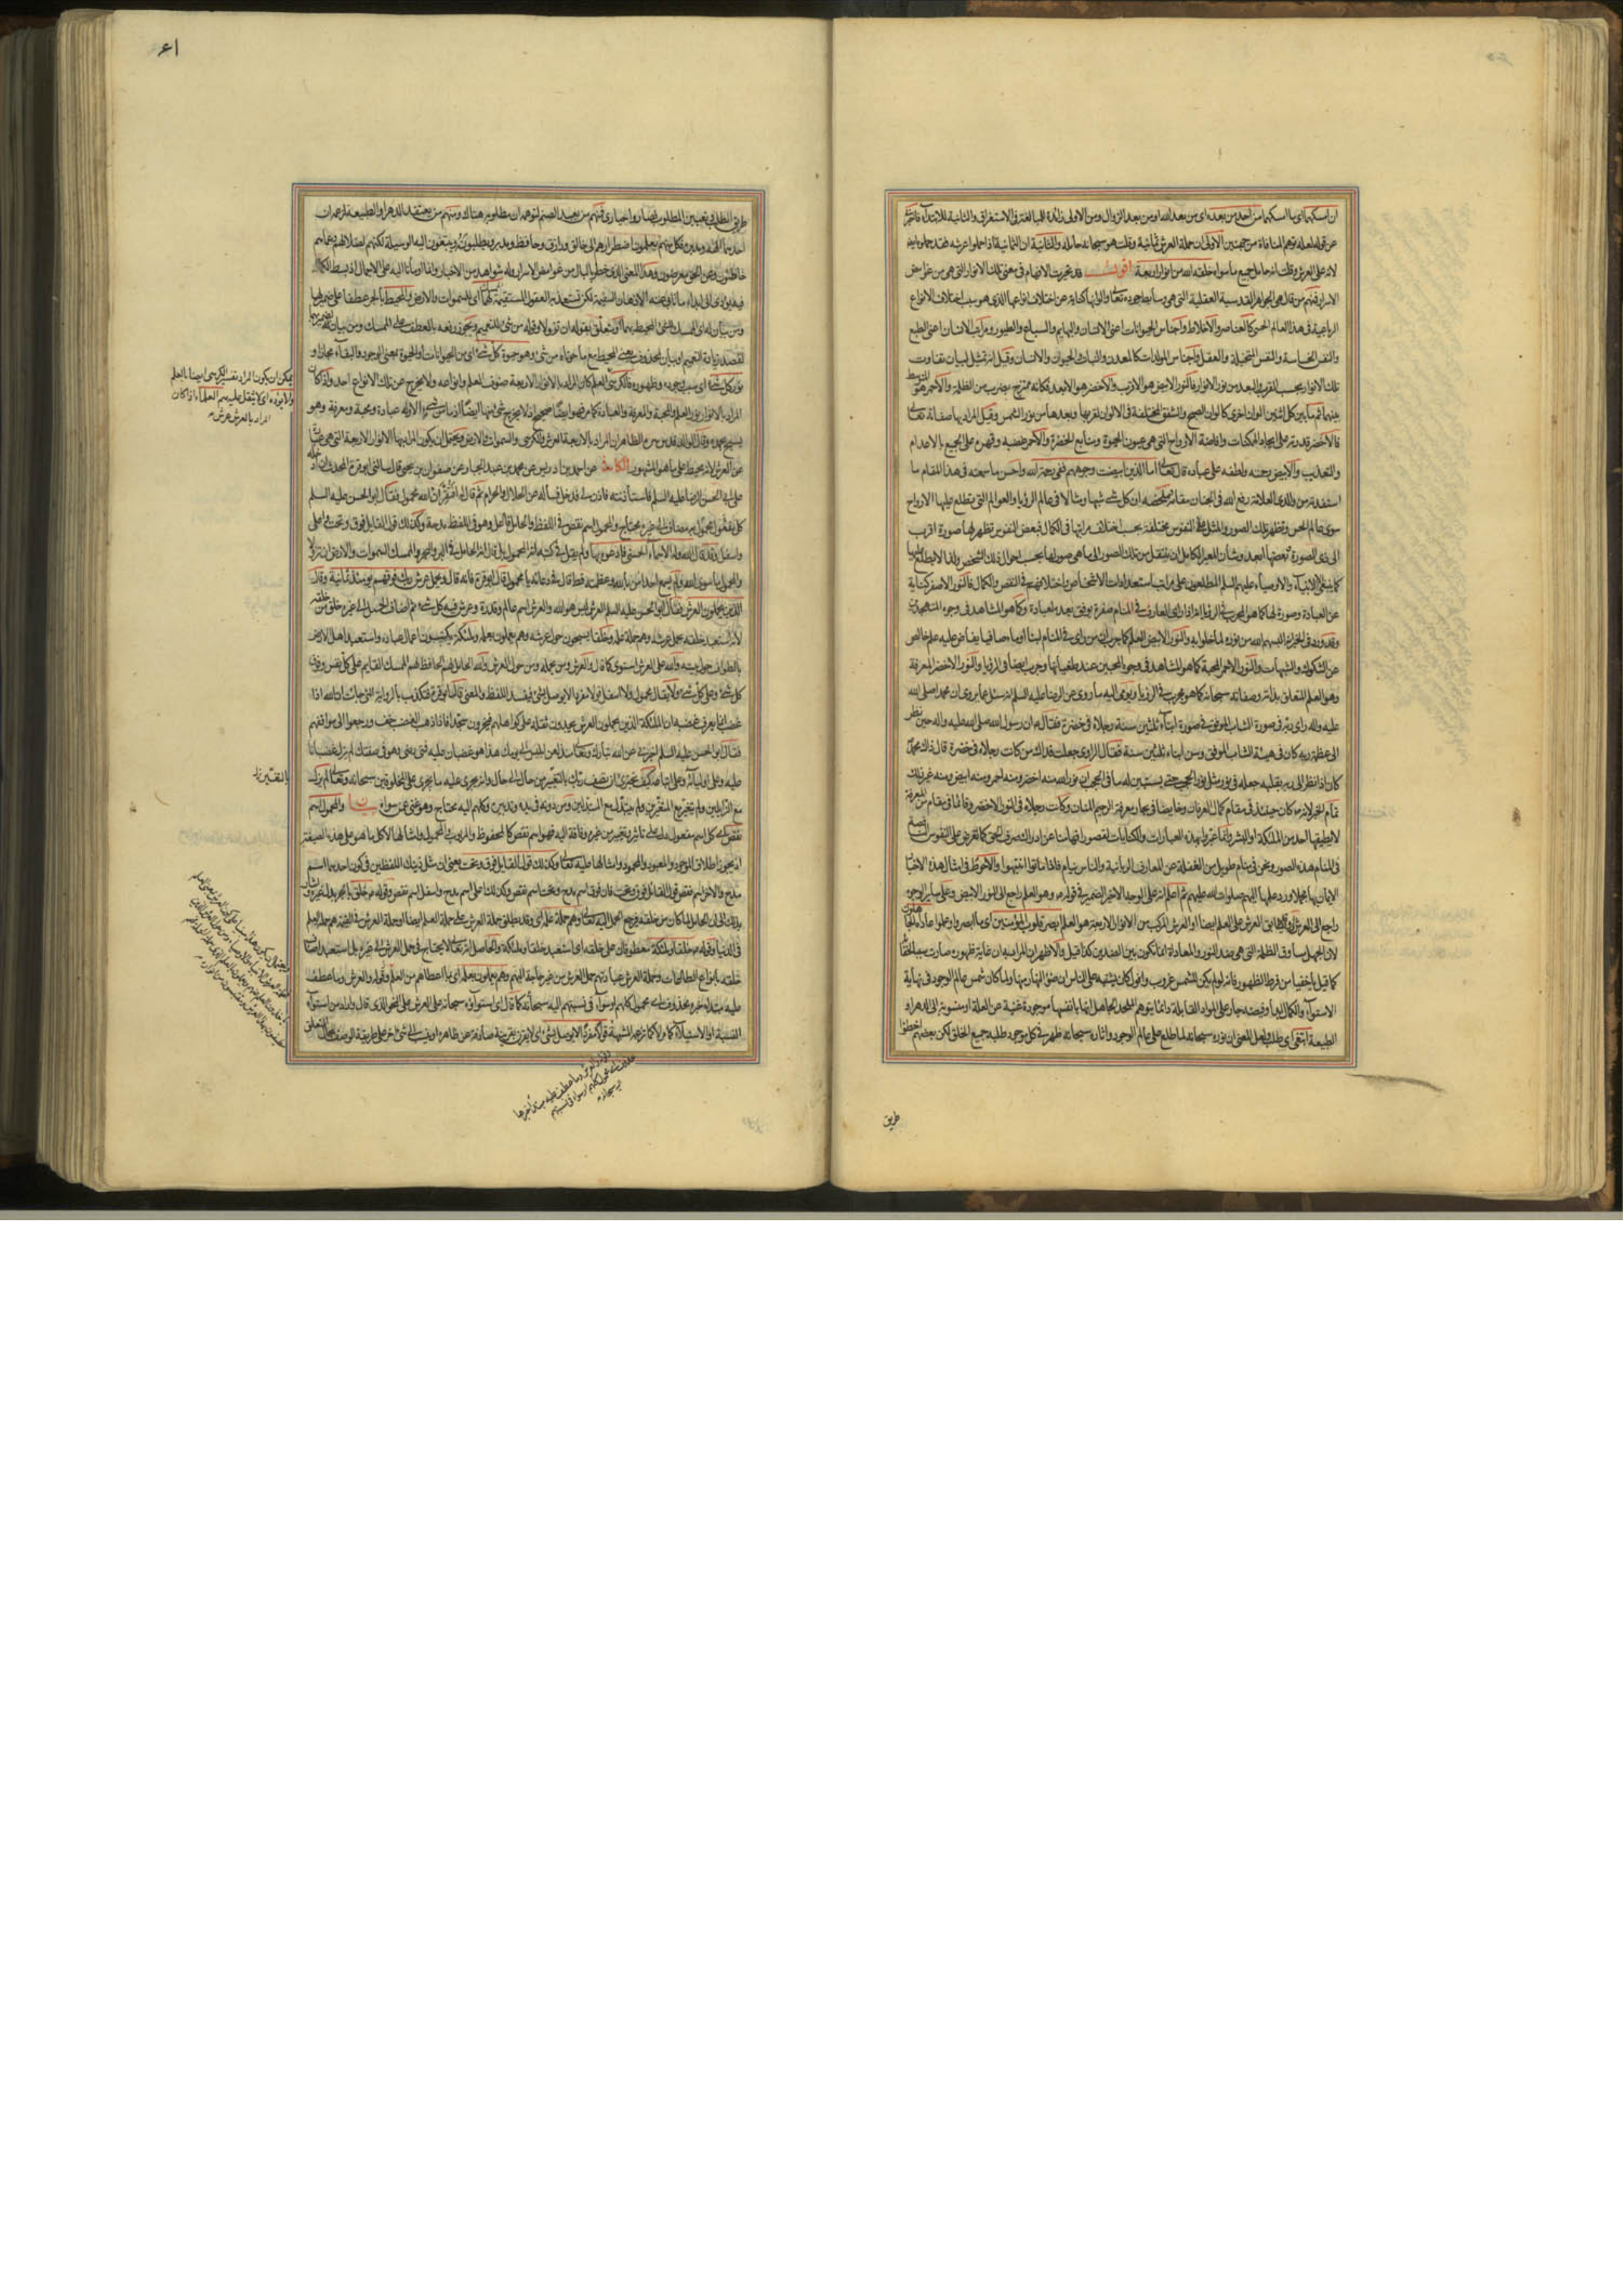 ان امسكهما اى ما امسكهما من احد من بعده اى من بعد الله او من بعد الزوال ومن الاولى زائدة للمبالغة فى الاستغراق والثانية للابتداء
عن قوله لعله توهم المنافاة من جهتين الاولى ان حملة العرش ثمانية وقلت هو سبحانه حامله والثانية ان الثمانية اذا حملوا عرشه فقد حملوه ايضا
لانه على العرش وقلت انه حامل جميع ما سواه خلقه الله من انوار اربعة اقول قد تحيرت الافهام فى معنى تلك الانوار التى هى من غوامض
الاسرار فمنهم من قال هى الجواهر القدسية العقلية التى هى وسايط جوده تعالى والوانها كناية عن اختلاف انواعها الذى هو سبب اختلاف الانواع
الرباعية فى هذا العالم الحسى كالعناصر والاخلاط واجناس الحيوانات اعنى الانسان والبهايم والسباع والطيور ومراتب الانسان اعنى الطبع
والنفس الحساسة والنفس المتخيلة والعقل واجناس المولدات كالمعدن والنبات والحيوان والانسان وقيل انه تمثيل لبيان تفاوت
تلك الانوار بحسب القرب والبعد من نور الانوار فالنور الابيض هو الاقرب والاخضر هو الابعد فكانه ممتزج بضرب من الظلمة والاحمر هو المتوسط
بينهما ثم ما بين كل اثنين الوان اخرى كالوان الصبح والشفق المختلفة فى الالوان لقربها وبعدها من نور الشمس وقيل المراد بها صفاته تعالى
فالاخضر قدرته على ايجاد الممكنات وافاضة الارواح التى هى عيون الحيوة ومنابع الخضرة والاحمر غضبه وقهره على الجميع بالاعدام
والتعذيب والابيض رحمته ولطفه على عباده قال تعالى اما الذين ابيضت وجوههم ففى رحمة الله واحسن ما سمعته فى هذا المقام ما
استفدته من والدى العلامة رفع الله فى الجنان مقامه وملخصه ان لكل شىء شبها ومثالا فى عالم الرؤيا والعوالم التى تطلع عليها الارواح
سوى عالم الحس وتظهر تلك الصور والمثل على النفوس مختلفة بحسب اختلاف مراتبها فى الكمال فبعض النفوس تظهر لها صورة اقرب
الى ذى الصورة وبعضها ابعد وشان المعبر الكامل ان ينتقل من تلك الصور الى ما هى صور لها بحسب احوال ذلك الشخص ولذا لا يطلع
كما ينبغى الا الانبياء والاوصياء عليهم السلم المطلعون على مراتب استعدادات الاشخاص واختلافهم فى النقص والكمال فالنور الاصفر كناية
عن العبادة وصورة لها كما هو المجرب فى الرؤيا انه اذا راى العارف فى المنام صفرة يوفق بعده لعبادة وكما هو المشاهد فى وجوه المتهجدين
وقد ورد فى الخبر انه البسهم الله من نوره لما خلوا به والنور الابيض العلم كما جرب ان من راى فى المنام لبنا او ماء صافيا يفاض عليه علم خالص
عن الشكوك والشبهات والنور الاحمر المحبة كما هو المشاهد فى وجوه المحبين عند طغيانها وجرب ايضا فى الرؤيا والنور الاخضر المعرفة
وهو العلم المتعلق بذاته وصفاته سبحانه كما هو مجرب فى الرؤيا ويومى اليه ما روى عن الرضا عليه السلم انه سئل عما يروى ان محمدا صلى الله
عليه واله راى ربه فى صورة الشاب الموفق فى صورة ابناء ثلثين سنة ورجلاه فى خضرة فقال ع ان رسول الله صلى الله عليه واله حين نظر
الى عظمة ربه كان فى هيئة الشاب الموفق وسن ابناء ثلثين سنة فقال الراوى جعلت فداك من كانت رجلاه فى خضرة قال ذاك محمد
كان اذا نظر الى ربه بقلبه جعله فى نور مثل نور الحجب حتى يستبين له ما فى الحجب ان نور الله منه اخضر ومنه احمر ومنه ابيض ومنه غير ذلك
تمام الخبر لانه ص كان حينئذ فى مقام كمال العرفان وخايضا فى بحار معرفة الرحيم المنان وكانت رجلاه فى النور الاخضر وقائما فى مقام من المعرفة
لا يطيقها احد من الملئكة والبشر وانما عبروا بهذه العبارات والكنايات لقصور افهامنا عن ادراك صرف الحق كما تعرض على النفوس الناقصة
فى المنام هذه الصور ونحن فى منام طويل من الغفلة عن المعارف الربانية والناس نيام فاذا ماتوا انتبهوا والاحوط فى امثال هذه الاخبار
الايمان بها مجملا ورد علمها اليهم صلوات الله عليهم ثم اعلم انه على الوجه الاخير الضمير فى قوله ع وهو العلم راجع الى النور الابيض وعلى ساير الوجوه
راجع الى العرش
لان الجهل مساوق الظلمة التى هى ضد النور والمعاداة انما تكون بين الضدين كذا قيل والاظهر ان المراد به ان غاية ظهوره صارت سببا لخفائه
كما قيل يا خفيا من فرط الظهور فانه لو لم يكن للشمس غروب وافول لكان يشتبه على الناس ان ضوء النهار منها ولما كان شمس عالم الوجود فى نهاية
الاستواء والكمال ابدا وفيضه جار على المواد القابلة دائما يتوهم الملحد الجاهل انها بانفسها موجودة غنية عن العلة او منسوبة الى الدهر او
الطبيعة ابتغى اى طلب ولعل المعنى ان نوره سبحانه لما طلع على عالم الوجود واثاره سبحانه ظهر فى كل موجود طلبه جميع الخلق لكن بعضهم اخطؤا
طريق
۶۱
طريق الطلب وتعيين المطلوب فصاروا حيارى فمنهم من يعبد الصنم لتوهمه ان مطلوبه هناك ومنهم من يعتقد الدهر او الطبيعة لزعمه ان
احدهما الهه ومدبره فكل منهم يعلمون اضطرارهم الى خالق ورازق وحافظ ومدبر ويطلبونه ويبتغون اليه الوسيلة لكنهم لضلالهم وعماهم
خاطئون وعن الحق معرضون وهذا المعنى الذى خطر بالبال من غوامض الاسرار وله شواهد من الاخبار وانما اومأنا اليه على الاجمال اذ بسط الكلام
فيه يؤدى الى ابداء ما تابى عنه الاذهان السقيمة لكن تستعذبه العقول المستقيمة لهما اى السموات والارض والمحيط بالجر عطفا على ضمير لهما
ومن بيان له اى الممسك للشىء المحيط بهما او متعلق بقوله ان تزولا وقوله من شىء للتعميم ويجوز رفعه بالعطف على الممسك ومن بيان
لقصد زيادة التعميم او بيان لمحذوف يعنى المحيط مع ما حوتاه من شىء وهو حيوة كل شىء اى من الحيوانات او الحيوة بمعنى الوجود والبقاء مجازا و
نور كل شىء اى سبب وجوده وظهوره فالكرسى
المراد بالانوار نور العلم والمحبة والمعرفة والعبادة كما مر فهو ايضا صحيح اذ لا يخرج شىء منها ايضا اذ ما من شىء الا وله عبادة ومحبة ومعرفة وهو
يسبح بحمده وقال الوالد قدس سره الظاهر ان المراد بالاربعة العرش والكرسى والسموات والارض ويحتمل ان يكون المراد بها الانوار الاربعة التى هى عبارة
عن العرش لانه محيط على ما هو المشهور الكافى عن احمد بن ادريس عن محمد بن عبد الجبار عن صفوان بن يحيى قال سالنى ابو قرة المحدث ان ادخله
على ابى الحسن الرضا عليه السلم فاستاذنته فاذن لى فدخل فساله عن الحلال والحرام ثم قال له افتقر ان الله محمول فقال ابو الحسن عليه السلم
كل محمول مفعول به مضاف الى غيره محتاج والمحمول اسم نقص فى اللفظ والحامل فاعل وهو فى اللفظ مدحة وكذلك قول القايل فوق وتحت واعلى
واسفل وقد قال الله وله الاسماء الحسنى فادعوه بها ولم يقل فى كتبه انه المحمول بل قال انه الحامل فى البر والبحر والممسك السموات والارض ان تزولا
والمحمول ما سوى الله ولم يسمع احد امن بالله وعظمته قط قال فى دعائه يا محمول قال ابو قرة فانه قال ويحمل عرش ربك فوقهم يومئذ ثمانية وقال
الذين يحملون العرش فقال ابو الحسن عليه السلم العرش ليس هو الله والعرش اسم علم وقدرة وعرش فيه كل شىء ثم اضاف الحمل الى غيره خلق من خلقه
لانه استعبد خلقه بحمل عرشه وهم حملة علمه وخلقا يسبحون حول عرشه وهم يعملون بعلمه وملئكة يكتبون اعمال عباده واستعبد اهل الارض
بالطواف حول بيته والله على العرش استوى كما قال والعرش ومن يحمله ومن حول العرش والله الحامل لهم الحافظ لهم الممسك القايم على كل نفس وفوق
كل شىء وعلى كل شىء ولا يقال محمول ولا اسفل قولا مفردا لا يوصل بشىء فيفسد اللفظ والمعنى قال ابو قرة فتكذب بالرواية التى جاءت ان الله اذا
غضب انما يعرف غضبه ان الملئكة الذين يحملون العرش يجدون ثقله على كواهلهم فيخرون سجدا فاذا ذهب الغضب خف ورجعوا الى مواقفهم
فقال ابو الحسن عليه السلم اخبرنى عن الله تبارك وتعالى منذ لعن ابليس الى يومك هذا هو غضبان عليه فمتى رضى وهو فى صفتك لم يزل غضبانا
عليه وعلى اوليائه وعلى اتباعه كيف تجترئ ان تصف ربك بالتغيير من حال الى حال وانه يجرى عليه ما يجرى على المخلوقين سبحانه وتعالى لم يزل
مع الزايلين ولم يتغير مع المتغيرين ولم يتبدل مع المتبدلين ومن دونه فى يده وتدبيره وكلهم اليه محتاج وهو غنى عمن سواه بيان والمحمول اسم
نقص اى كل اسم مفعول دل على تاثير وتغيير من غيره وفاقة اليه فهو اسم نقص كالمحفوظ والمربوب والمحمول وامثالها لا كل ما هو على هذه الصيغة
اذ يجوز اطلاق الموجود والمعبود والمحمود وامثالها عليه تعالى وكذلك قول القايل فوق وتحت يعنى ان مثل ذينك اللفظين فى كون احدهما اسم
مدح والاخر اسم نقص قول القائل فوق وتحت فان فوق اسم مدح وتحت اسم نقص وكذلك اعلى اسم مدح واسفل اسم نقص وقوله ع خلق بالجر بدل غيره واشار
بذلك الى ان الحامل لما كان من خلقه فيرجع الحمل اليه تعالى وهم حملة علمه اى وقد يطلق حملة العرش على حملة العلم ايضا او حملة العرش فى القيمة هم حملة العلم
فى الدنيا وقوله ع خلقا وملئكة معطوفان على خلقه اى استعبد خلقا وملئكة والحاصل انه تعالى لا يحتاج فى حمل العرش الى غيره بل استعبد اصناف
خلقه بانواع الطاعات وحملة العرش عبادتهم حمل العرش من غير حاجة اليهم وهم يعملون بعلمه اى بما اعطاهم من العلم وقوله والعرش وما عطف
عليه مبتدأ خبره محذوف اى محمول كلهم او سواء فى نسبتهم اليه سبحانه كما قال اى استواؤه سبحانه على العرش على النحو الذى قال واراد من استواء
النسبة او الاستيلاء كما مر لا كما تزعمه المشبهة قولا مفردا لا يوصل بشىء اى لا يقرن بقرينة صارفة عن ظاهره او ينسب الى شىء اخر على طريقة الوصف بحال المتعلق
يمكن ان يكون المراد بقيد الكرسى ايضا بالعلم
ولا يؤده اى لا يثقل عليه العلم اذا كان
المراد بالعرش عرش
بالتغيير